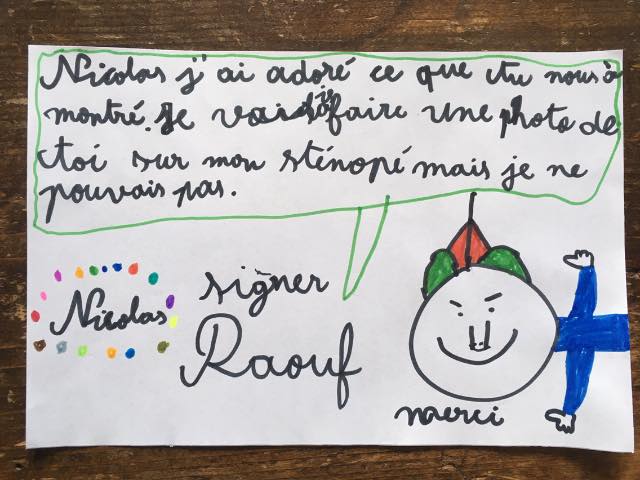 Nicolas j'ai adoré ce que tu nous à
montré. Je vais faire une photo de
toi sur mon sténopé mais je ne
pouvais pas.
Nicolas
signer
Raouf
merci